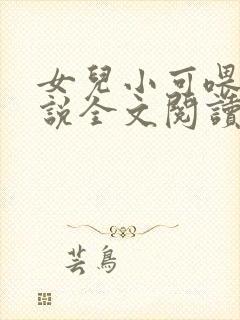 女兒小可喂
說全文閱讀
芸鳥